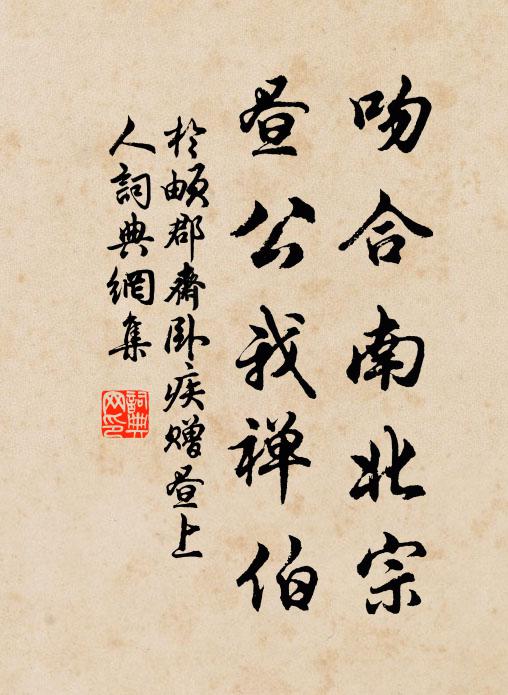 吻合南北宗
昼公我禅伯
于頔郡斋卧疾赠昼上
人词典网集
词典网印